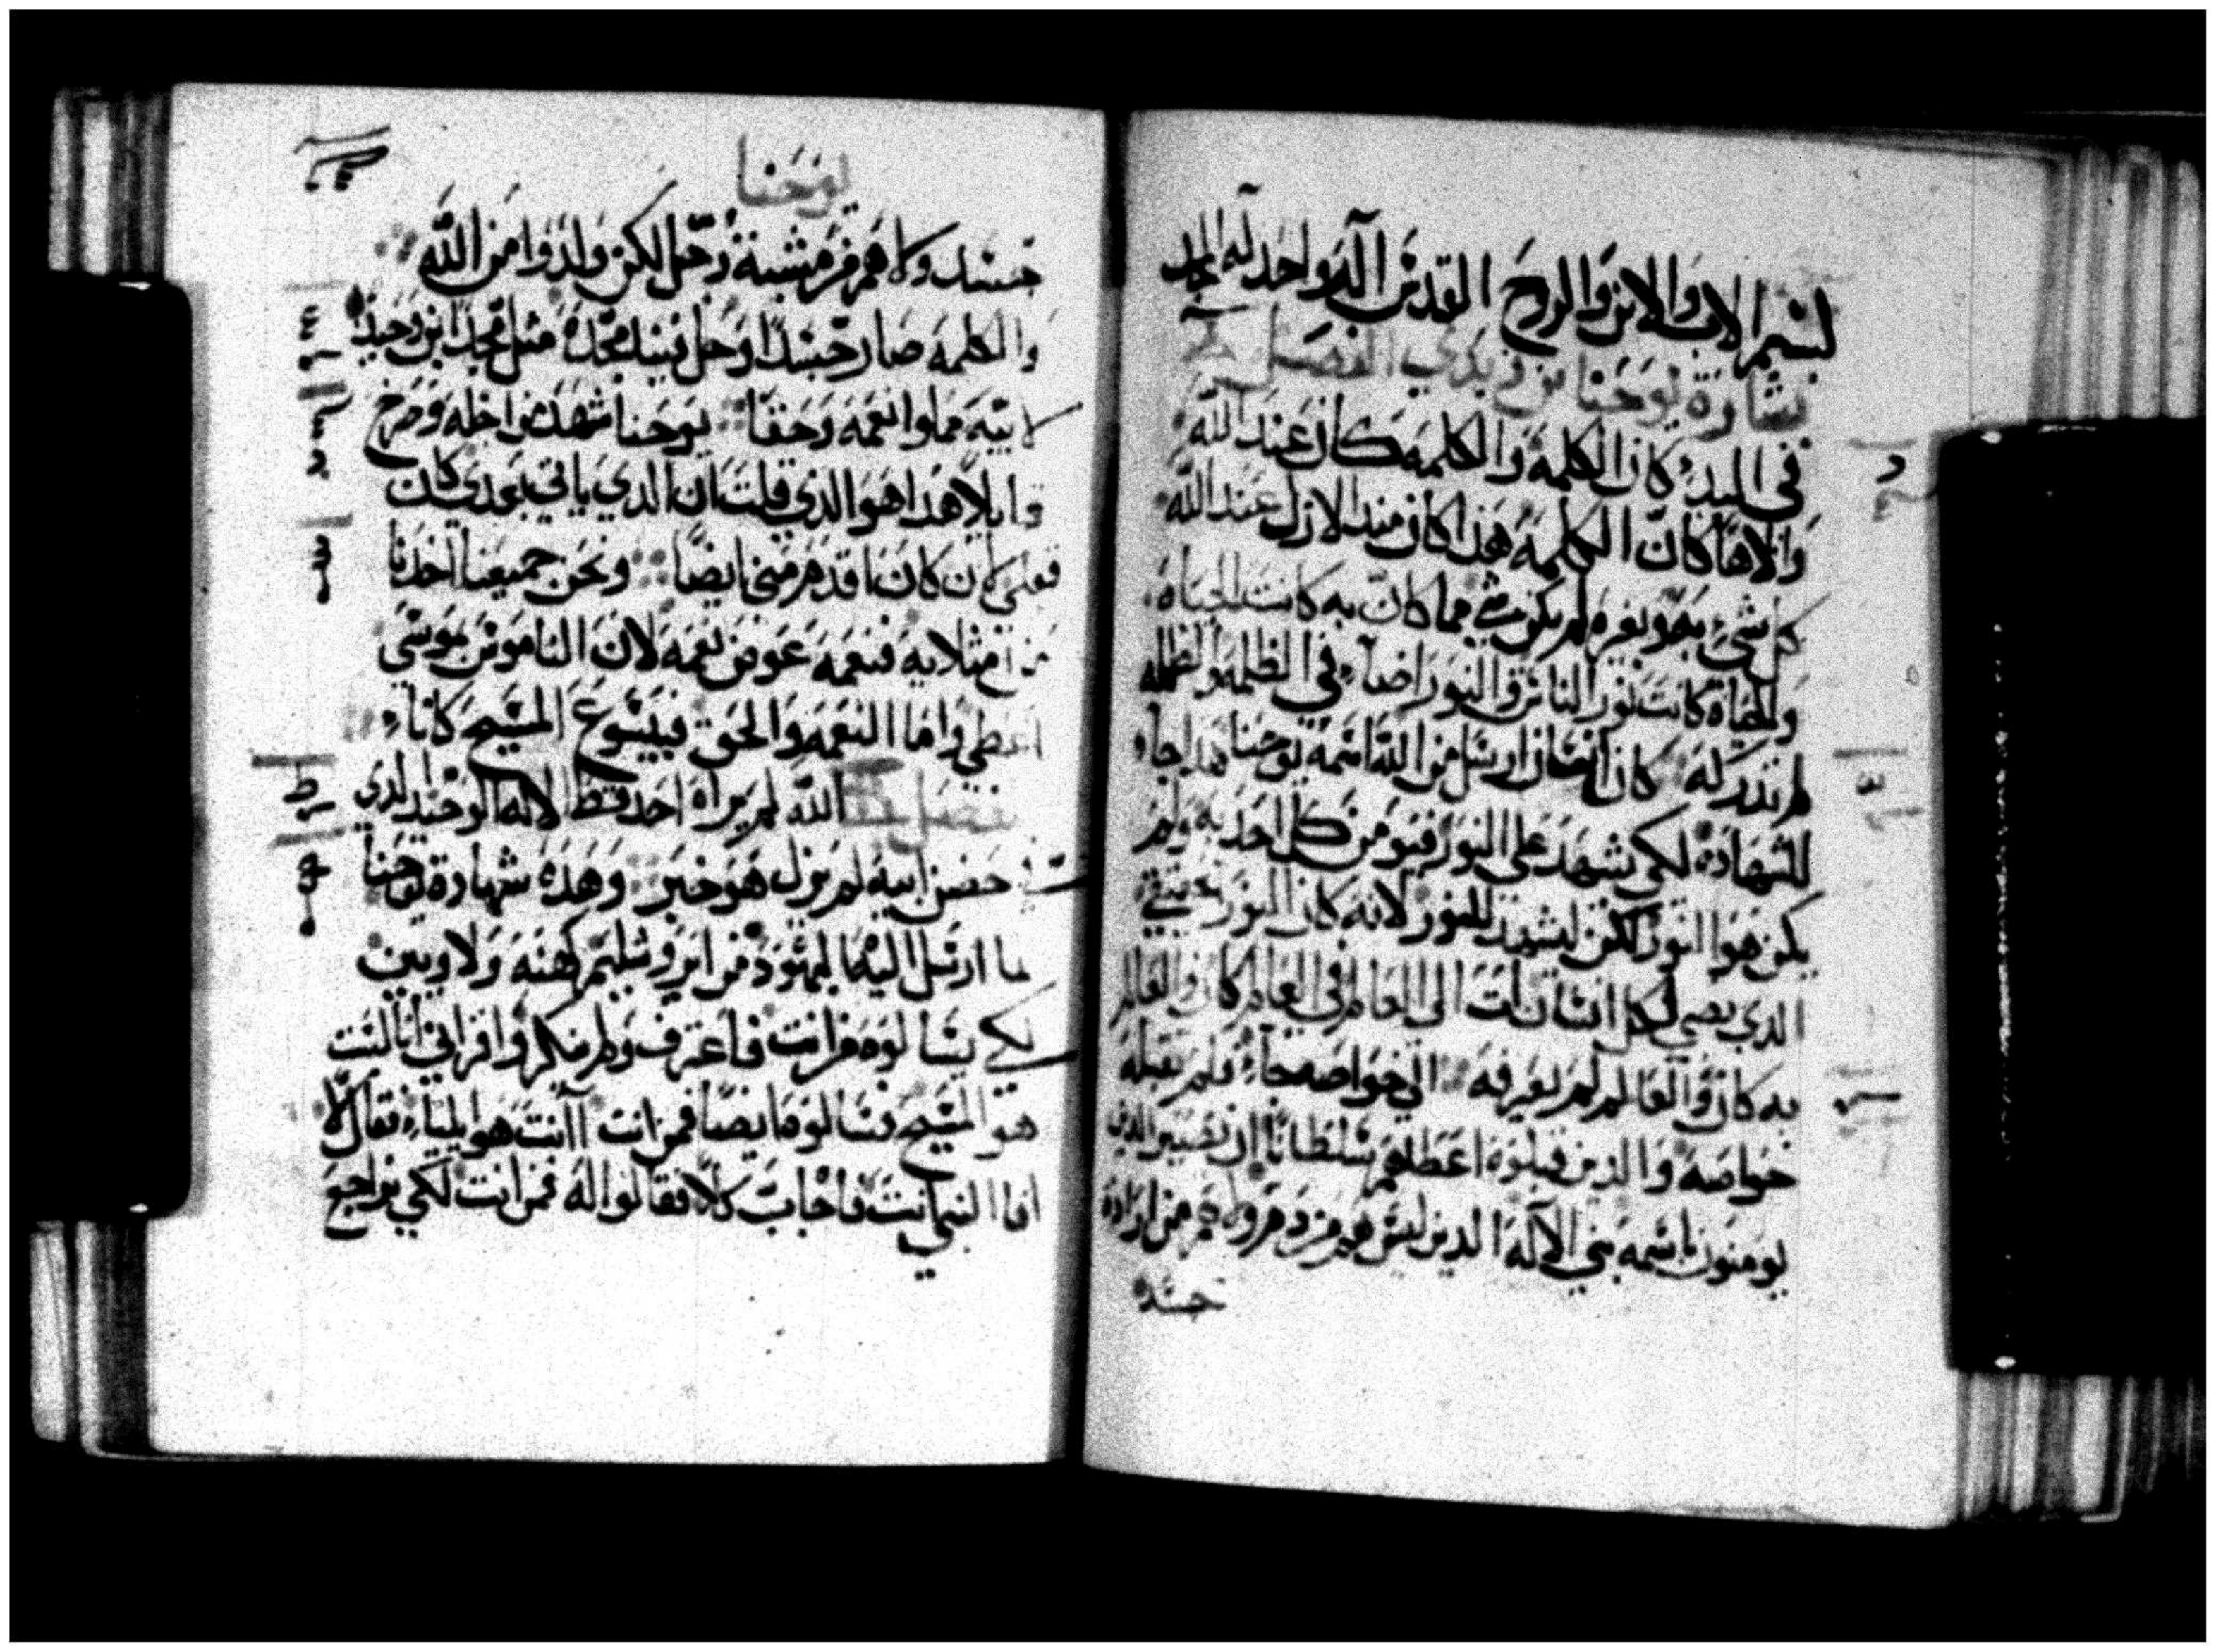 بسم الاب والابن والروح القدس اله واحد له المجد
بشارة يوحنا بن زبدي الفصل
في البدء كان الكلمة والكلمه كان عند الله
والاها كان الكلمه هذا كان منذ الازل عند الله
كل شيء به وبغيره لم يكن شي مما كان به كانت الحياه
والحياة كانت نور الناس والنور اضاء في الظلمه والظلمه
لم تدركه كان انسان ارسل من الله اسمه يوحنا هذا جاء
للشهادة لكي يشهد على النور فيومن كل احد به ولم
يكن هو النور لكن ليشهد للنور لانه كان النور
الذي يضي لكل انسان ات الى العالم في العالم كان والعالم
به كان والعالم لم يعرفه الى خواصه جاء فلم تقبله
خواصه والذين قبلوه اعطاهم سلطانا ان الذين
يومنون باسمه بني الاله الذين ليس هم من دم ولا هم من ارادة
جسد
يوحنا
جسد ولا هم من مشية رجل لكن ولدوا من الله
والكلمه صار جسدا وحل فينا مجده مثل مجد ابن وحيد
لابيه مملوا نعمه وحقا يوحنا شهد من اجله وصرخ
قايلا هذا هو الذي قلت ان الذي ياتي بعدي كان
كان اقدم مني ايضا ونحن جميعنا اخذنا
من امتلايه فنعمه عوض نعمه لان الناموس بموسي
اعطي واما النعمه والحق فبيسوع المسيح كانا
الله لم يراه احد قط الاله الوحيد الذي
حضن ابيه لم يزل هو خبر وهذه شهادة يوحنا
لما ارسل اليه اليهود من ايروشليم كهنه ولاويين
لكي يسالوه من انت فاعترف ولم ينكر واقر اني انا لست
هو المسيح فسالوه ايضا فمن انت اانت هو ايلياء فقال كلا
افا النبي انت فاجاب كلا فقالوا له فمن انت لكي نراجع